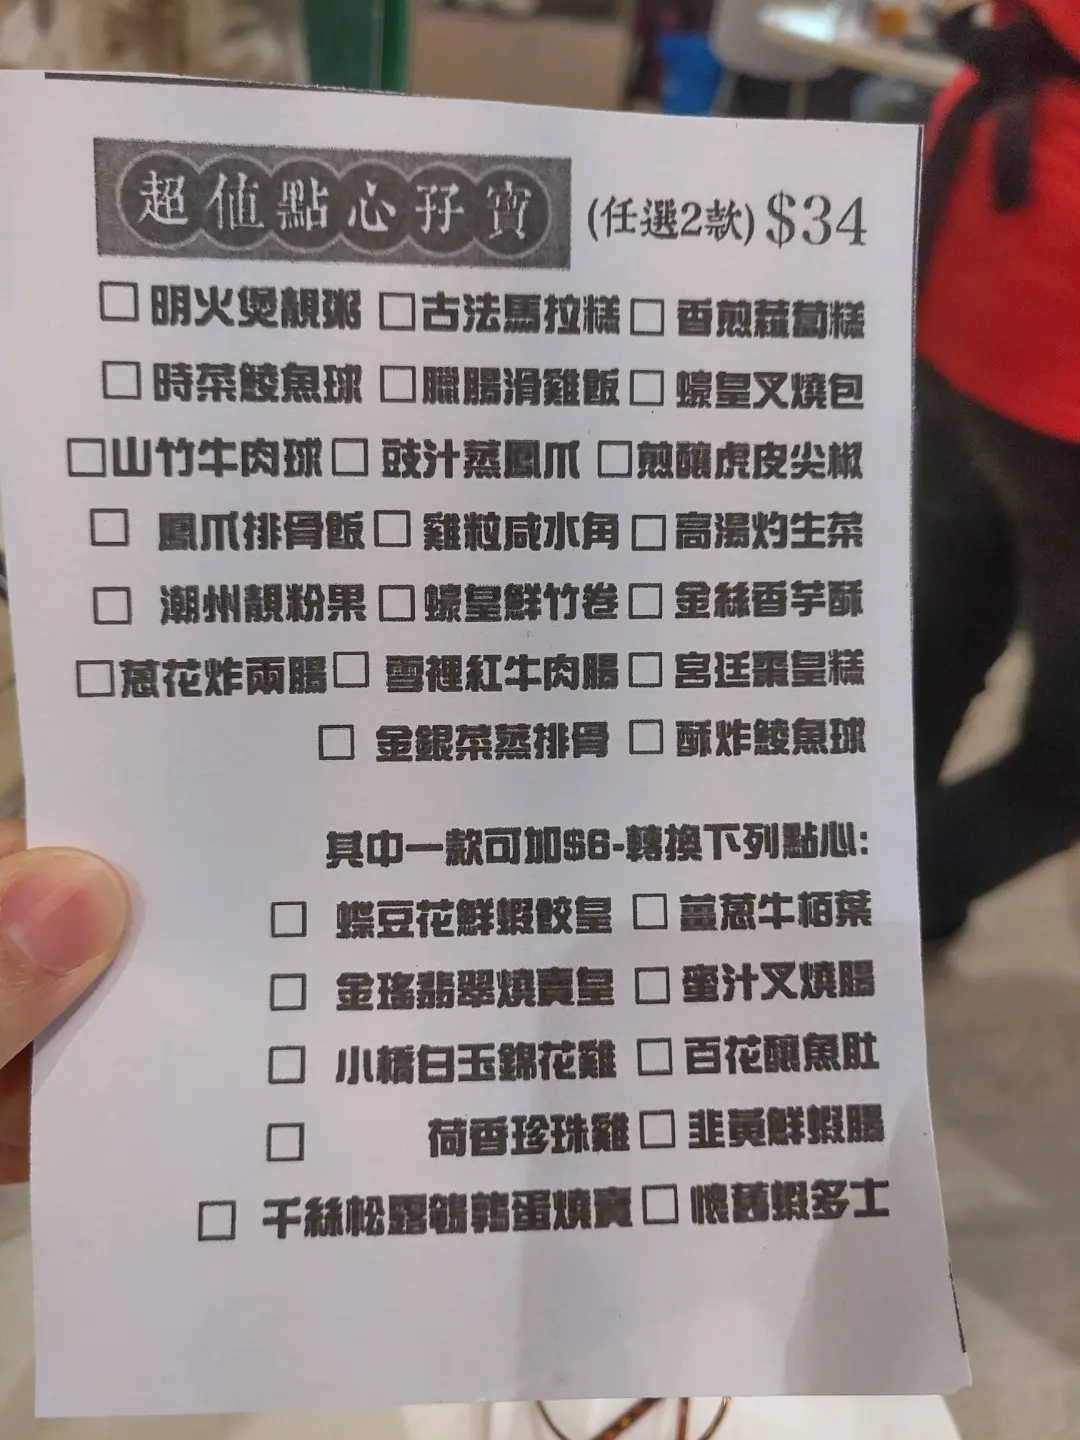 超值點心孖寶 (任選2款) $34
□ 明火煲靚粥 □ 古法馬拉糕 □ 香煎蘿蔔糕
□ 時菜鯪魚球 □ 臘腸滑雞飯 □ 蠔皇叉燒包
□ 山竹牛肉球 □ 豉汁蒸鳳爪 □ 煎釀虎皮尖椒
□ 鳳爪排骨飯 □ 雞粒咸水角 □ 高湯灼生菜
□ 潮州靚粉果 □ 蠔皇鮮竹卷 □ 金絲香芋酥
□ 蔥花炸兩腸 □ 雪裡紅牛肉腸 □ 宮廷棗皇糕
□ 金銀菜蒸排骨 □ 酥炸鯪魚球
其中一款可加$6-轉換下列點心:
□ 蝶豆花鮮蝦餃皇 □ 薑蔥牛栢葉
□ 金瑤翡翠燒賣皇 □ 蜜汁叉燒腸
□ 小橋白玉錦花雞 □ 百花釀魚肚
□ 荷香珍珠雞 □ 韭黃鮮蝦腸
□ 千絲松露鵪鶉蛋燒賣 □ 懷舊蝦多士